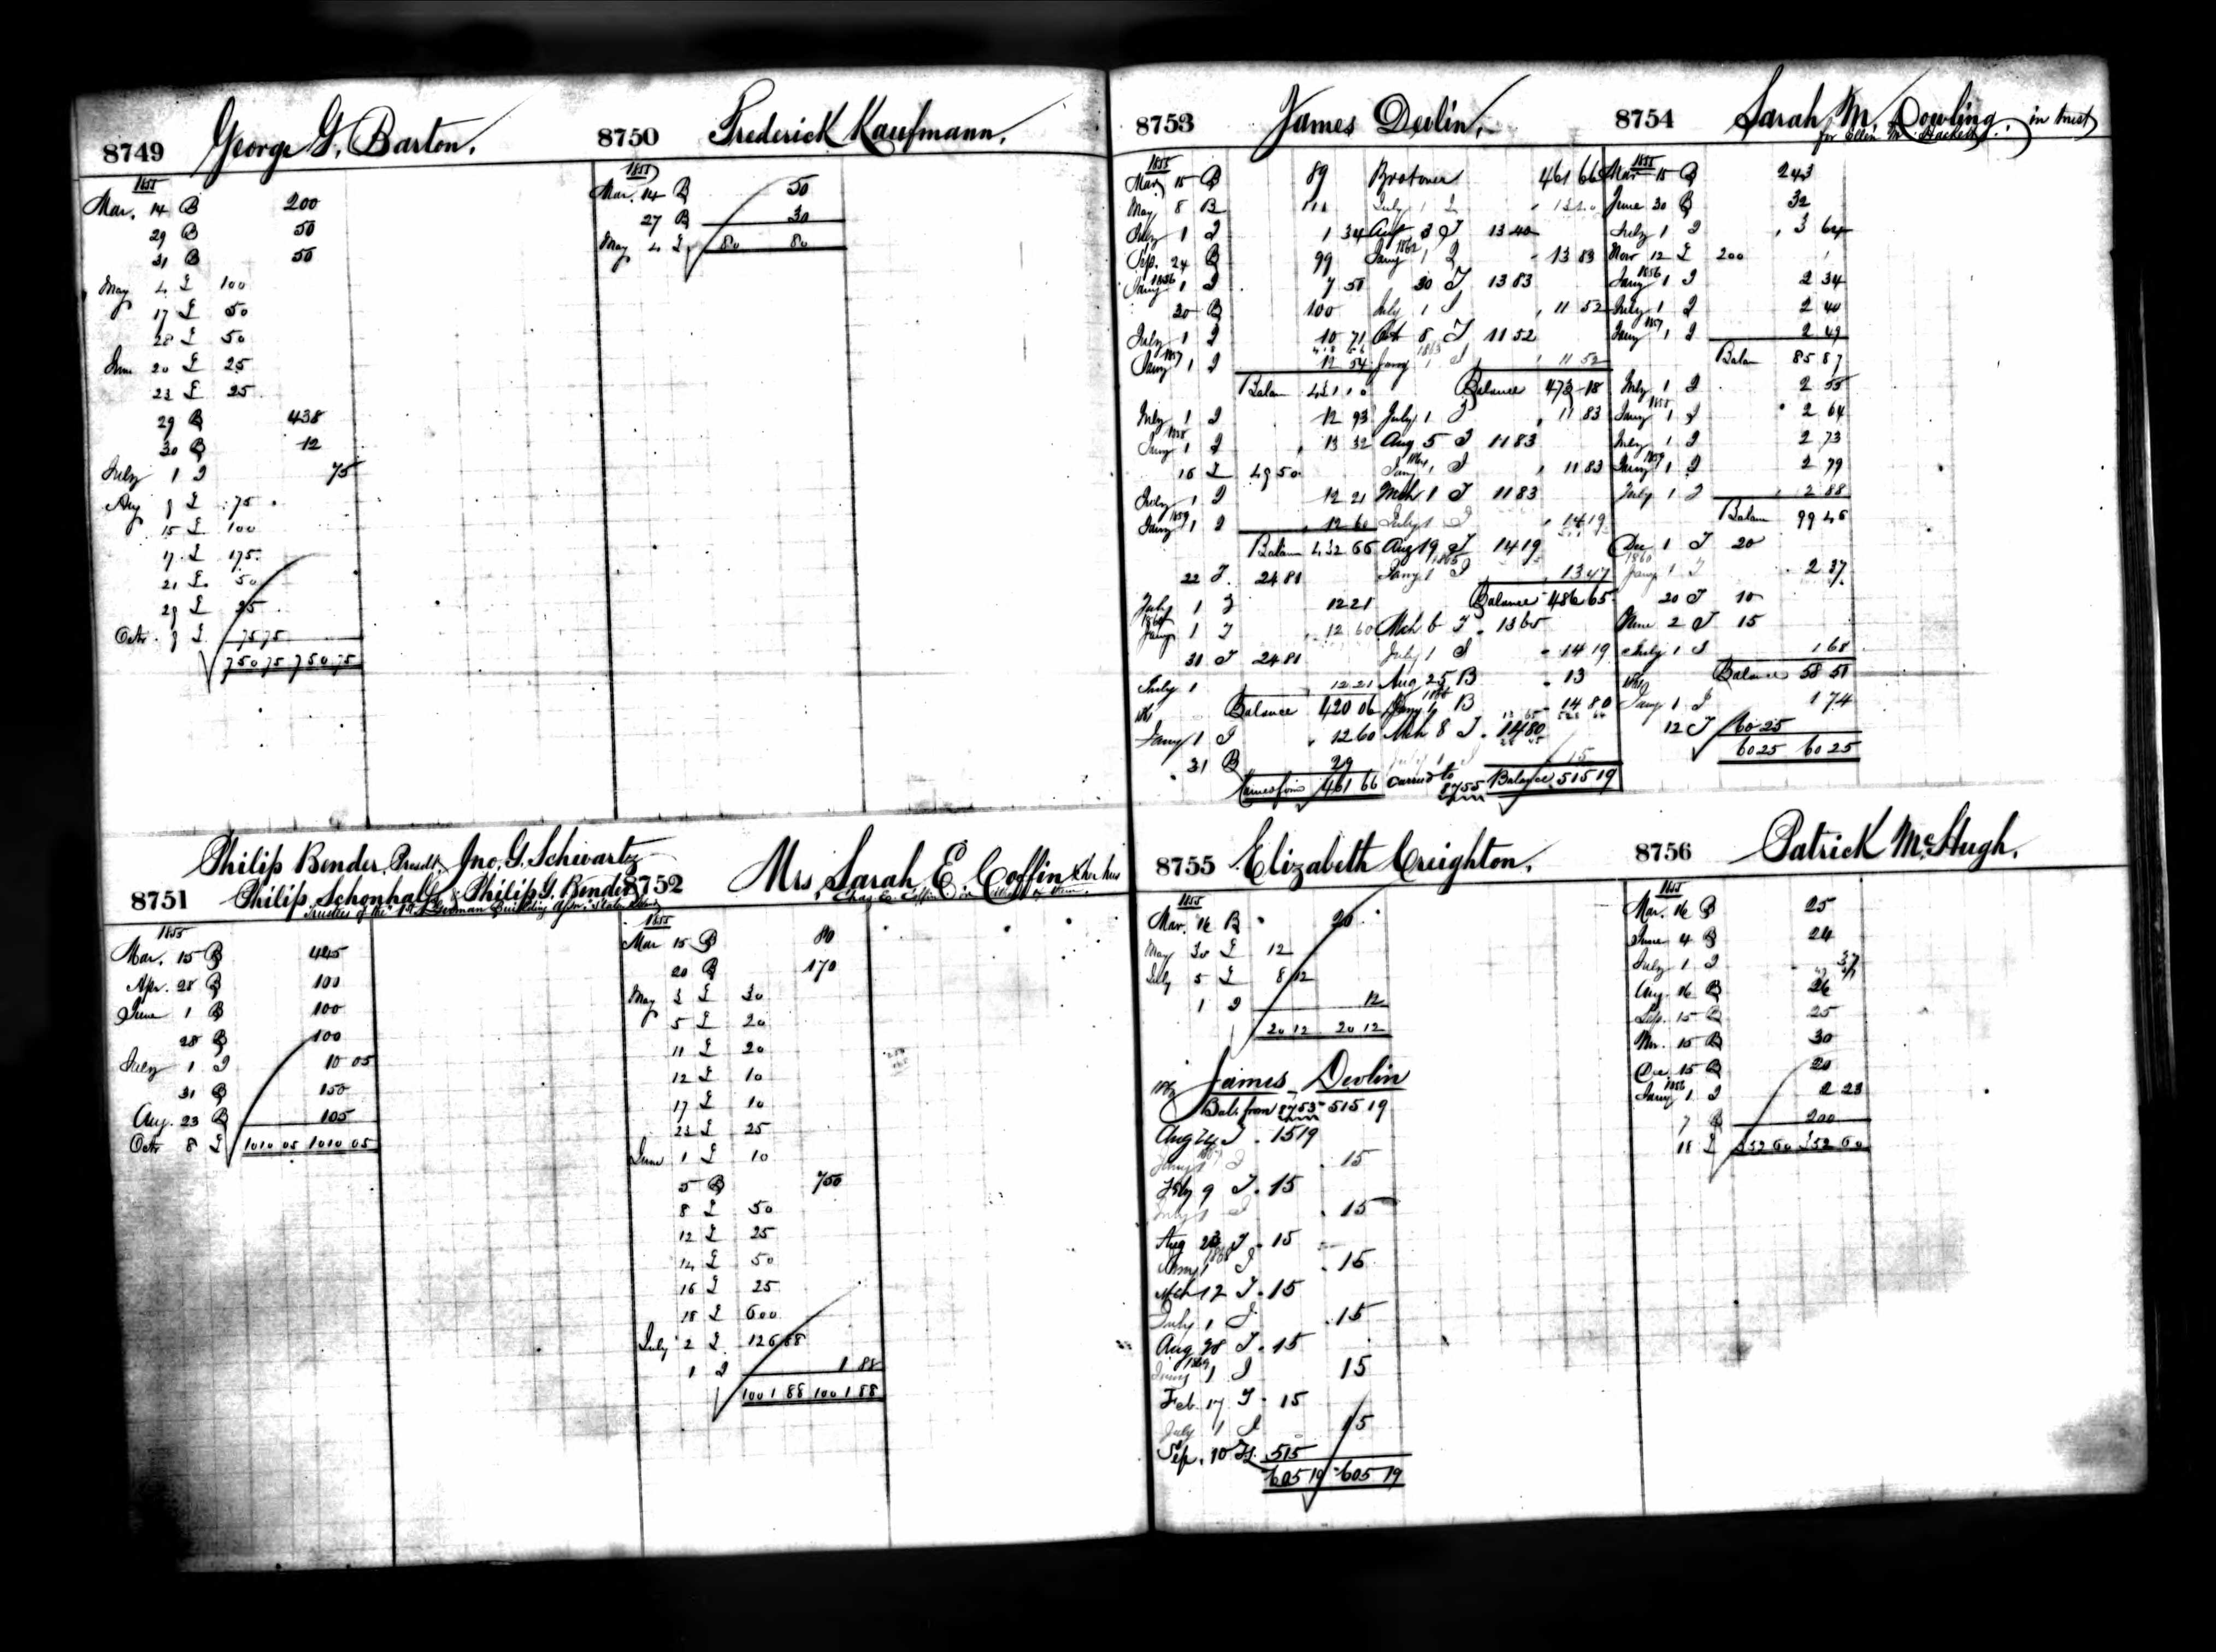 8749 George G. Barton.
1855
Mar. 14 B 200
29 B 50
31 B 50
May 4 L 100
17 L 50
28 L 50
June 20 L 25
23 L 25
29 B 438
30 B 12
July 1 I 75
Aug 9 L 75
15 L 100
17 L 175
21 L 50
29 L 25
Octr. 9 L 75 75
750 75 750 75
8750 Frederick Kaufmann.
1855
Mar. 14 B 50
27 B 30
May 4 L 80 80
8751 Philip Bender, Presdt. Jno. G. Schwartz
Philip Schonhals & Philip G. Bender
Trustees of the 1st German Building Assn.
1855
Mar. 15 B 445
Apr. 28 B 100
June 1 B 100
28 B 100
July 1 I 10 05
31 B 150
Aug. 23 B 105
Octr 8 L 1010 05 1010 05
8752 Mrs Sarah E. Coffin & her hus
Chas E. Coffin
1855
Mar 15 B 80
20 B 170
May 3 L 30
5 L 20
11 L 20
12 L 10
17 L 10
23 L 25
June 1 L 10
5 B 750
8 L 50
12 L 25
14 L 50
16 L 25
18 L 600
July 2 L 126 88
1 I 1 88
1001 88 1001 88
8753 James Devlin.
1855
Mar 15 B 89
May 8 B
July 1 I 1 34
Sep. 24 B 99
1856
Jany 1 I 7 51
20 B 100
July 1 I 10 71
1857
Jany 1 I 12 54
Balan 431 10
July 1 I 12 93
1858
Jany 1 I 13 32
16 L 49 50
July 1 I 12 21
1859
Jany 1 I 12 60
Balan 432 66
22 T 24 81
July 1 I 12 21
1860
Jany 1 I 12 60
31 T 24 81
July 1 12 21
Balance 420 06
1861
Jany 1 I 12 60
31 B 29
461 66
Brot over 461 66
July 1 I
Aug 3 T 13 40
1862
Jany 1 I 13 83
20 T 13 83
July 1 I 11 52
Oct 8 T 11 52
1863
Jany 1 I 11 52
Balance 473 18
July 1 I 11 83
Aug 5 T 11 83
1864
Jany 1 I 11 83
Mch 1 T 11 83
July 1 I 14 19
Aug 19 T 14 19
1865
Jany 1 I 13 47
Balance 486 65
Mch 6 T 13 65
July 1 I 14 19
Aug 25 B 13
1866
Jany 1 B 14 80
Mch 8 T 14 80
July 1 I 15
carried to 8755 Balance 515 19
8754 Sarah M. Dowling. in trust
for Ellen M. Hackett.
1855
Mar 15 B 243
June 30 B 32
July 1 I 3 64
Novr 12 L 200
1856
Jany 1 I 2 34
July 1 I 2 40
1857
Jany 1 I 2 49
Balan 85 87
July 1 I 2 55
1858
Jany 1 I 2 64
July 1 I 2 73
1859
Jany 1 I 2 79
July 1 I 2 88
Balan 99 46
Dec 1 T 20
1860
Jany 1 I 2 37
20 T 10
June 2 T 15
July 1 I 1 68
Balance 58 51
1861
Jany 1 I 1 74
12 T 60 25
60 25 60 25
8755 Elizabeth Creighton.
1855
Mar. 16 B 20
May 30 L 12
July 5 L 8 12
1 I 12
20 12 20 12
1866 James Devlin
Bal. from 8753 515 19
Aug 24 T 15 19
1867
Jany 1 I 15
Feby 9 T 15
July 1 I 15
Aug 23 T 15
1868
Jany 1 I 15
Mch 12 T 15
July 1 I 15
Aug 28 T 15
1869
Jany 1 I 15
Feb. 17 T 15
July 1 I 15
Sep. 10 515
605 19 605 19
8756 Patrick McHugh.
1855
Mar. 16 B 25
June 4 B 24
July 1 I 37
Aug. 16 B 26
Sep. 15 B 25
Nov. 15 B 30
Dec. 15 B 20
1856
Jany 1 I 2 23
7 B 200
18 L 352 60 352 60